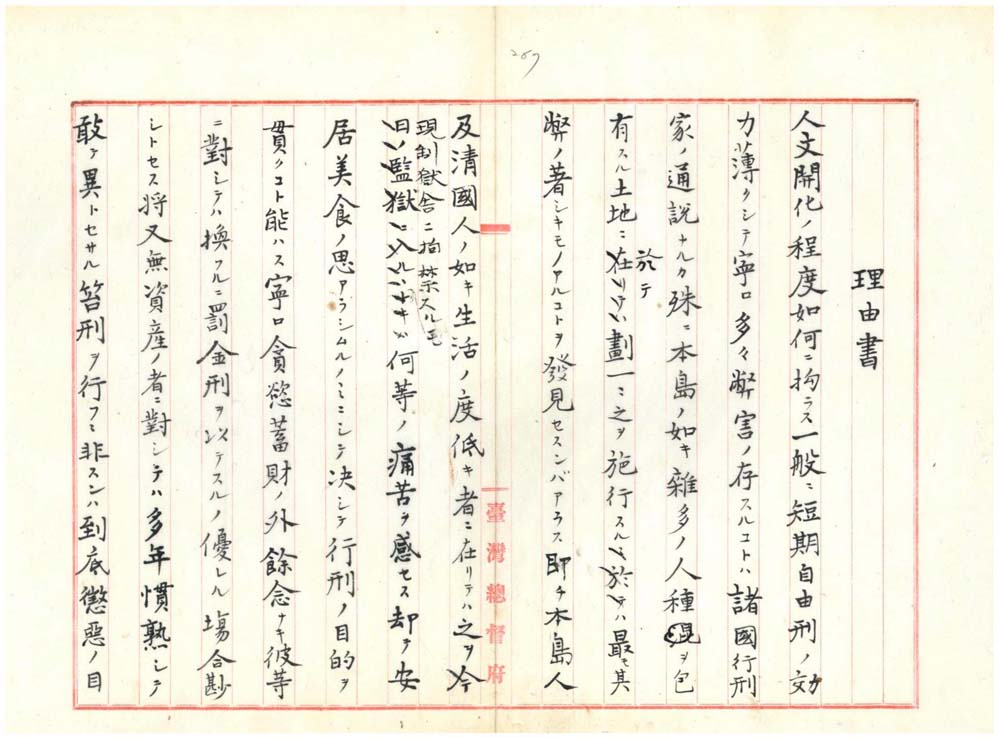 257
理由書
人文開化ノ程度如何ニ拘ラス一般ニ短期自由刑ノ効
力薄クシテ寧ロ多々弊害ノ存スルコトハ諸國行刑
家ノ通説ナルカ殊ニ本島ノ如キ雜多ノ人種ヲ包
有スル土地ニ於テ劃一ニ之ヲ施行スルハ最モ其
弊ノ著シキモノアルコトヲ發見セスンバアラス即チ本島人
及清國人ノ如キ生活ノ度低キ者ニ在リテハ之ヲ今
現制獄舎ニ拘禁スルモ
日ノ監獄ニ入ルヽトキハ何等ノ痛苦ヲ感セス却テ安
居美食ノ思アラシムルノミニシテ决シテ行刑ノ目的ヲ
貫クコト能ハス寧ロ貪慾蓄財ノ外餘念ナキ彼等
ニ對シテハ換フルニ罰金刑ヲ以テスルノ優レル場合尠
シトセス將又無資産ノ者ニ對シテハ多年慣熟シテ
敢テ異トセサル笞刑ヲ行フニ非スンハ到底懲惡ノ目
臺灣總督府